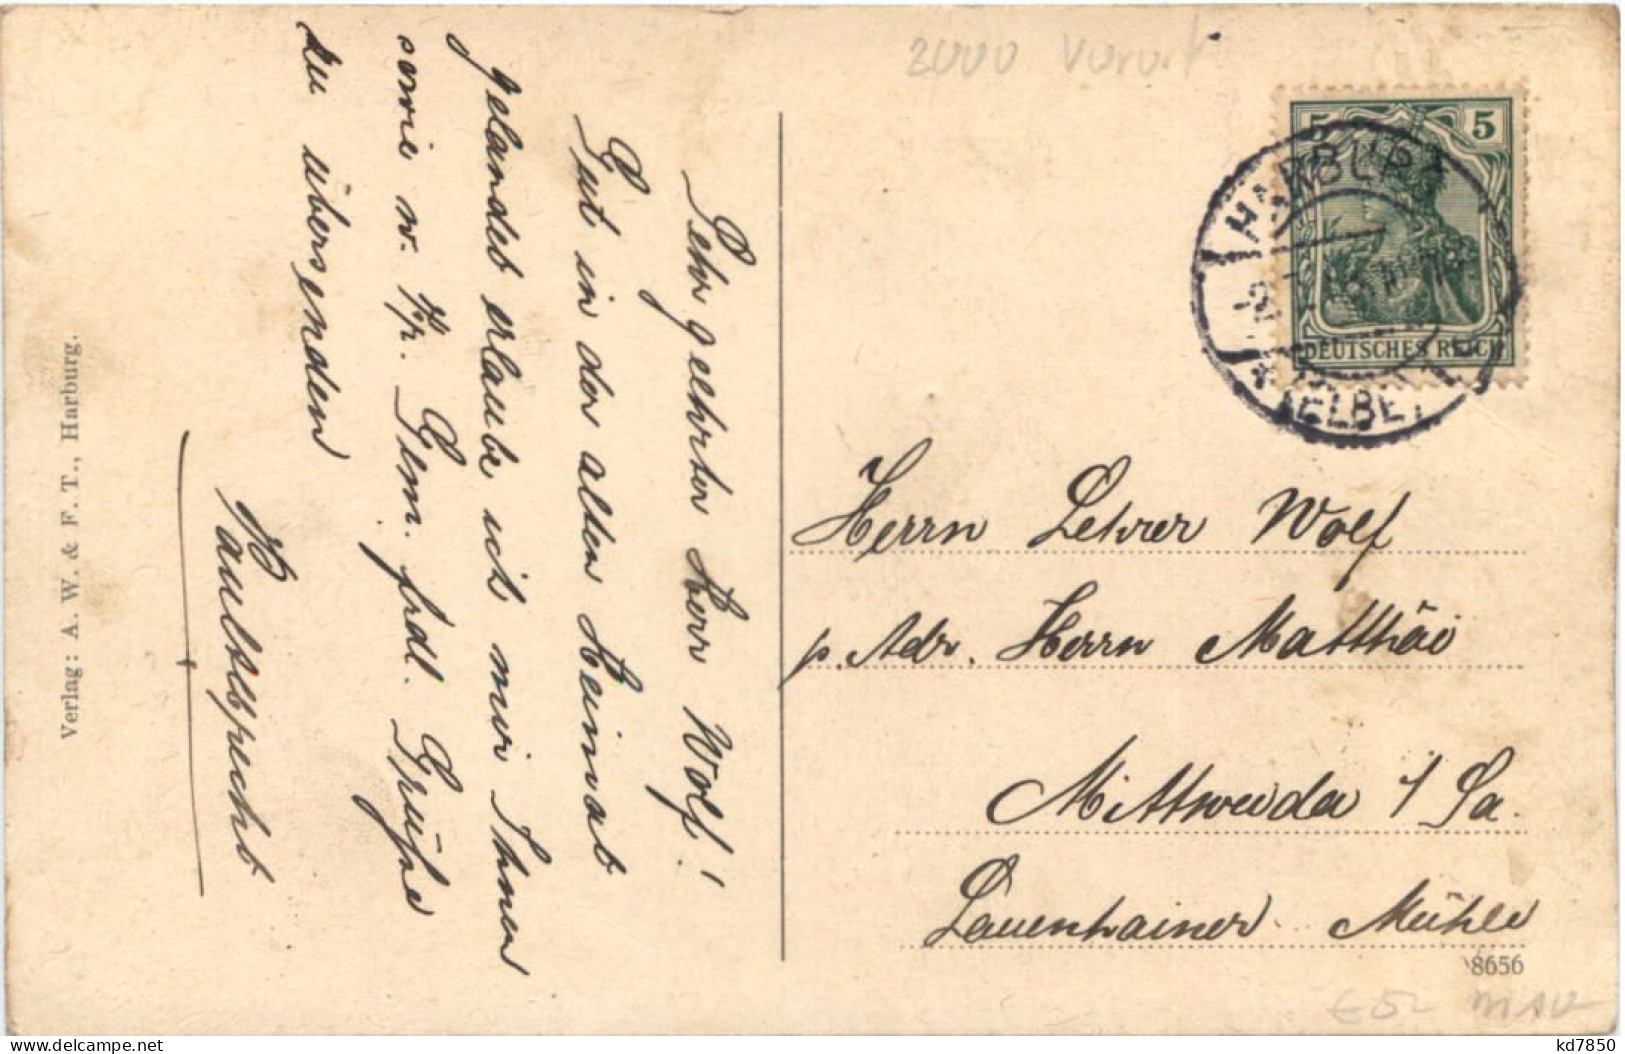 2000 Vorort
5 5
DEUTSCHES REICH
HARBURG
(ELBE)
Sehr geehrter Herr Wolf!
Gut in der alten Heimat
gelandet erlaube ich mir Ihnen
sowie w. Gem. frdl. Grüße
zu übersenden
Herrn Lehrer Wolf
p. Adr. Herrn Matthäi
Mittweida i/Sa.
Lauenhainer Mühle
Verlag: A. W. & F. T., Harburg.
8656
kd7850